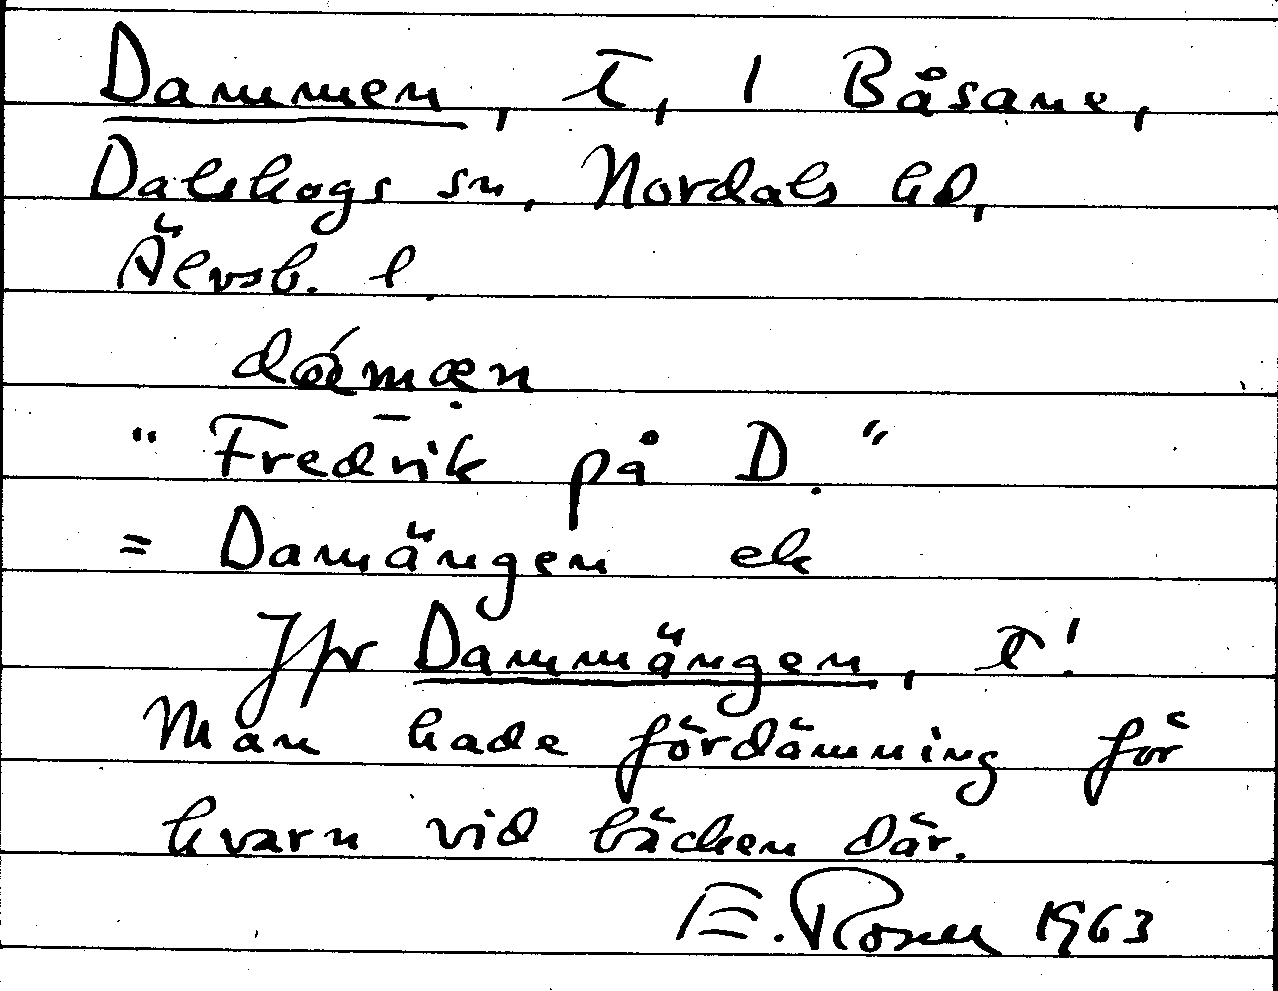 Dammen, T, 1 Båsane,
Dalskogs sn, Nordals hd,
Älvsb. l.
dámæn
"Fredrik på D."
= Damängen ek
Jfr Dammängen, T!
Man hade fördämning för
kvarn vid bäcken där.
E. Rosell 1963